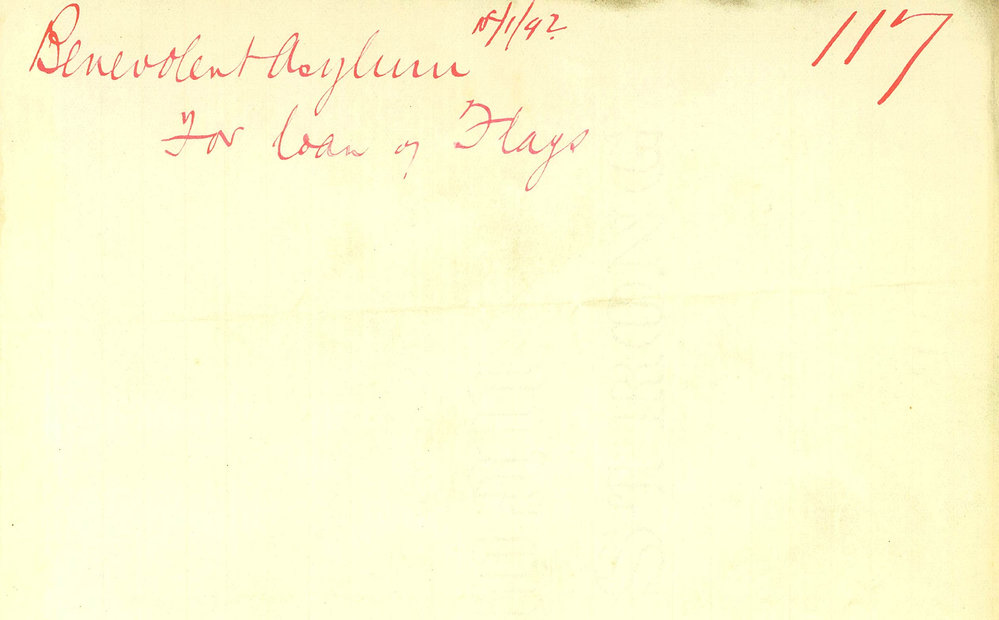 15/1/92
117
Benevolent Asylum
For loan of Flags